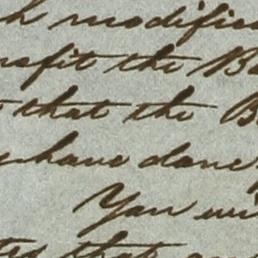 h modifie
nsfit the B
that the B
have done
You wi
tes that